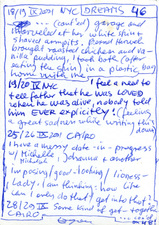 18/19 IX 2011 NYC DREAMS 46
... (cont'ed) garage and
marveled at his white skin +
shaved armpits. Floral Manuel
brought roasted chicken and va-
nilla pudding, I took both (after
eating the skin) in a plastic bag
home with me.
19/20 IX NYC I feel a need to
tell father that he was LOVED
when he was alive, nobody told
him EVER explicitly! (feeling
a great sadness while writing this
down)
25/26 IX 2011 CAIRO
I have a merry date-in-progress
w/ Michelle
Mikelj, Johanna + another
im posing/good-looking/lioness-
lady. I am thinking: how life
can I only do that? get into that?
28/29 IX Some kind of get-together
CAIRO